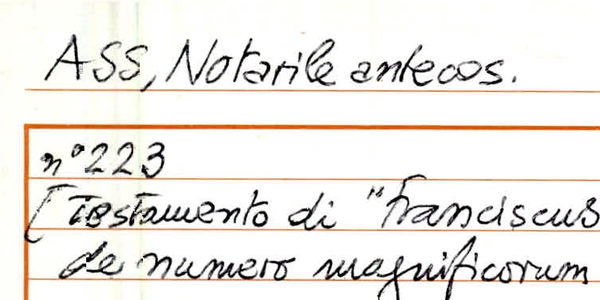 ASS, Notarile antecos.
n° 223
[Testamento di "Franciscus
de numero magnificorum